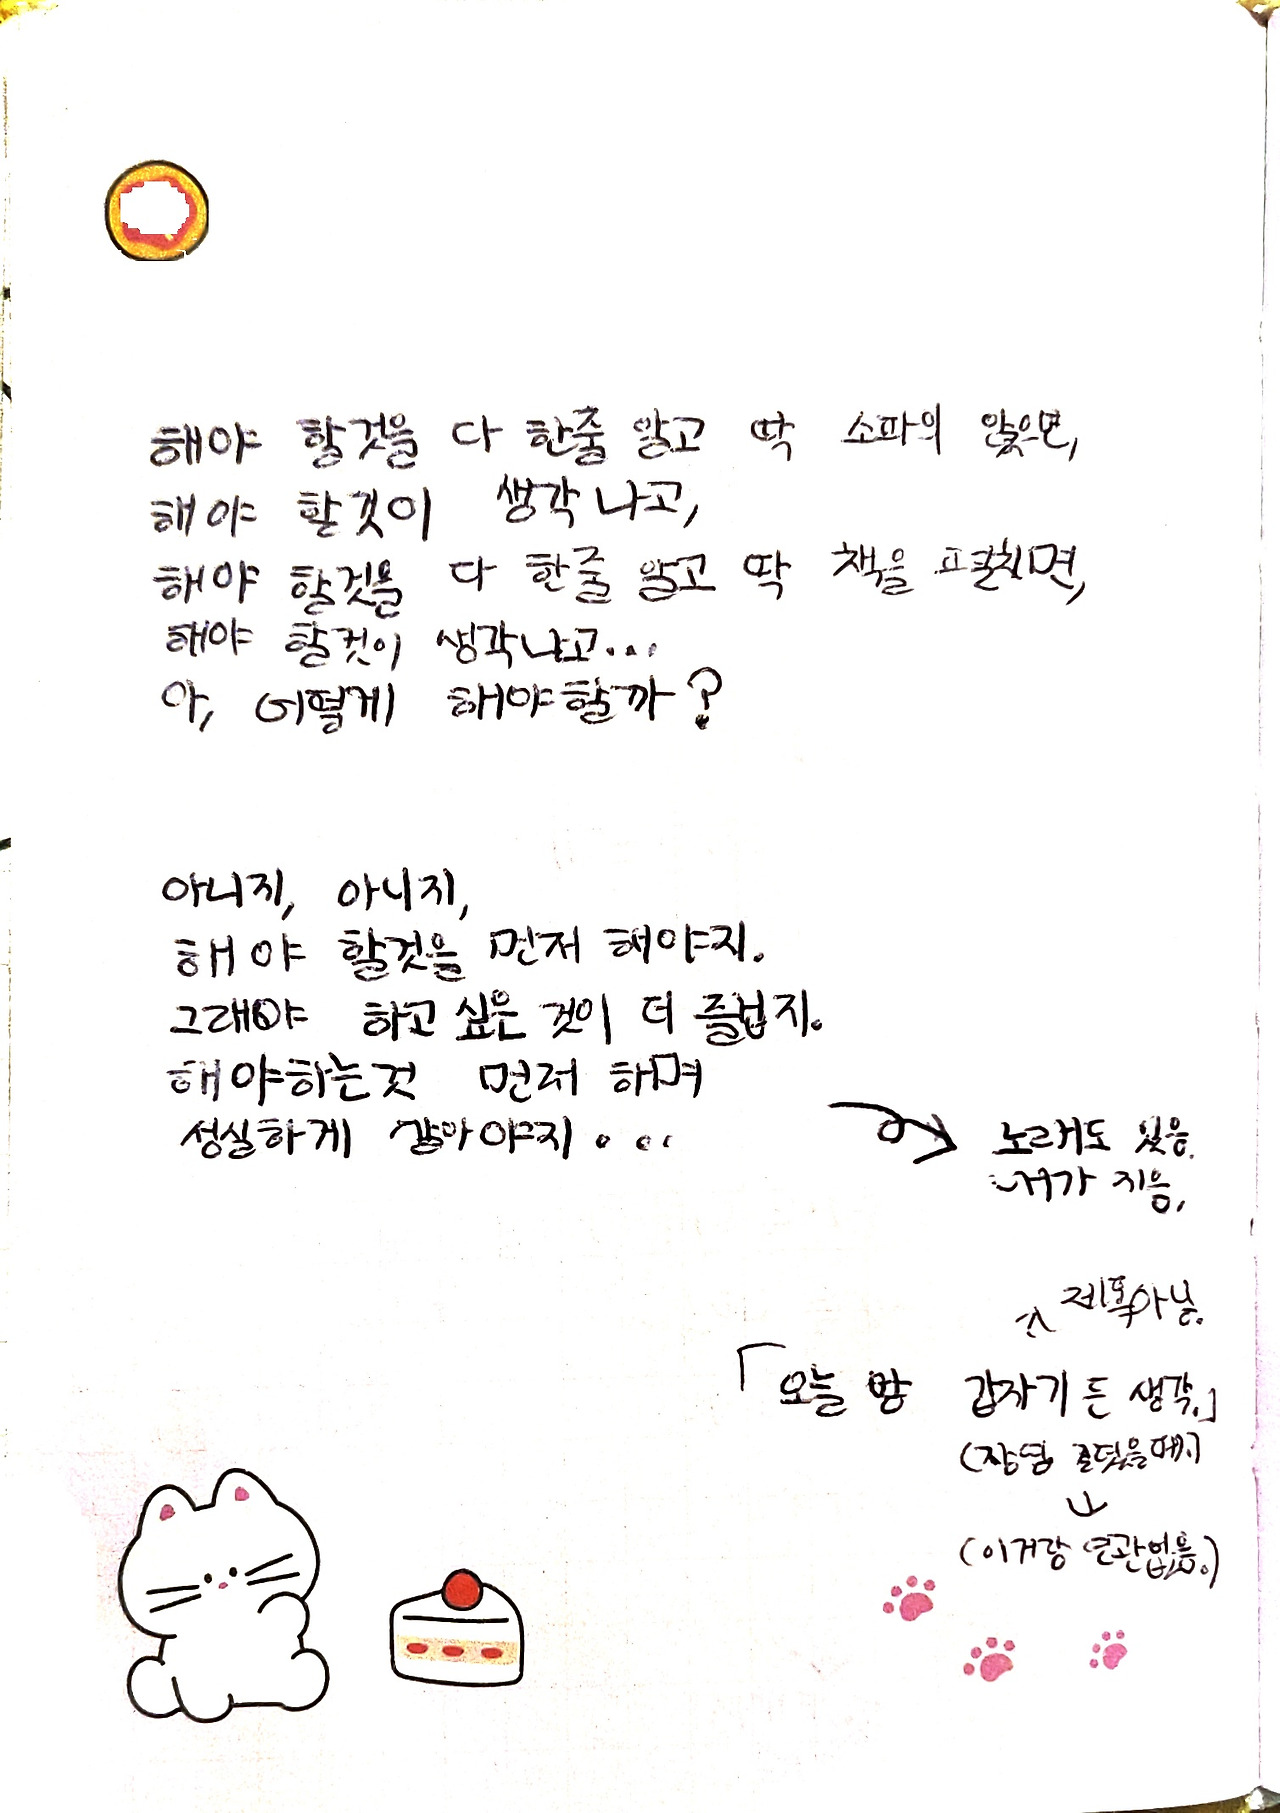 해야 할것을 다 한줄 알고 딱 소파의 앉으면,
해야 할것이 생각 나고,
해야 할것을 다 한줄 알고 딱 책을 펼치면,
해야 할것이 생각나고...
아, 어떻게 해야할까?
아니지, 아니지,
해야 할것을 먼저 해야지.
그래야 하고 싶은 것이 더 즐겁지.
해야하는것 먼저 해며
성실하게 살아야지...
노래도 있음.
내가 지음,
제목아님.
「오늘 밤 갑자기 든 생각.」
(장염
(이거랑 연관없음.)